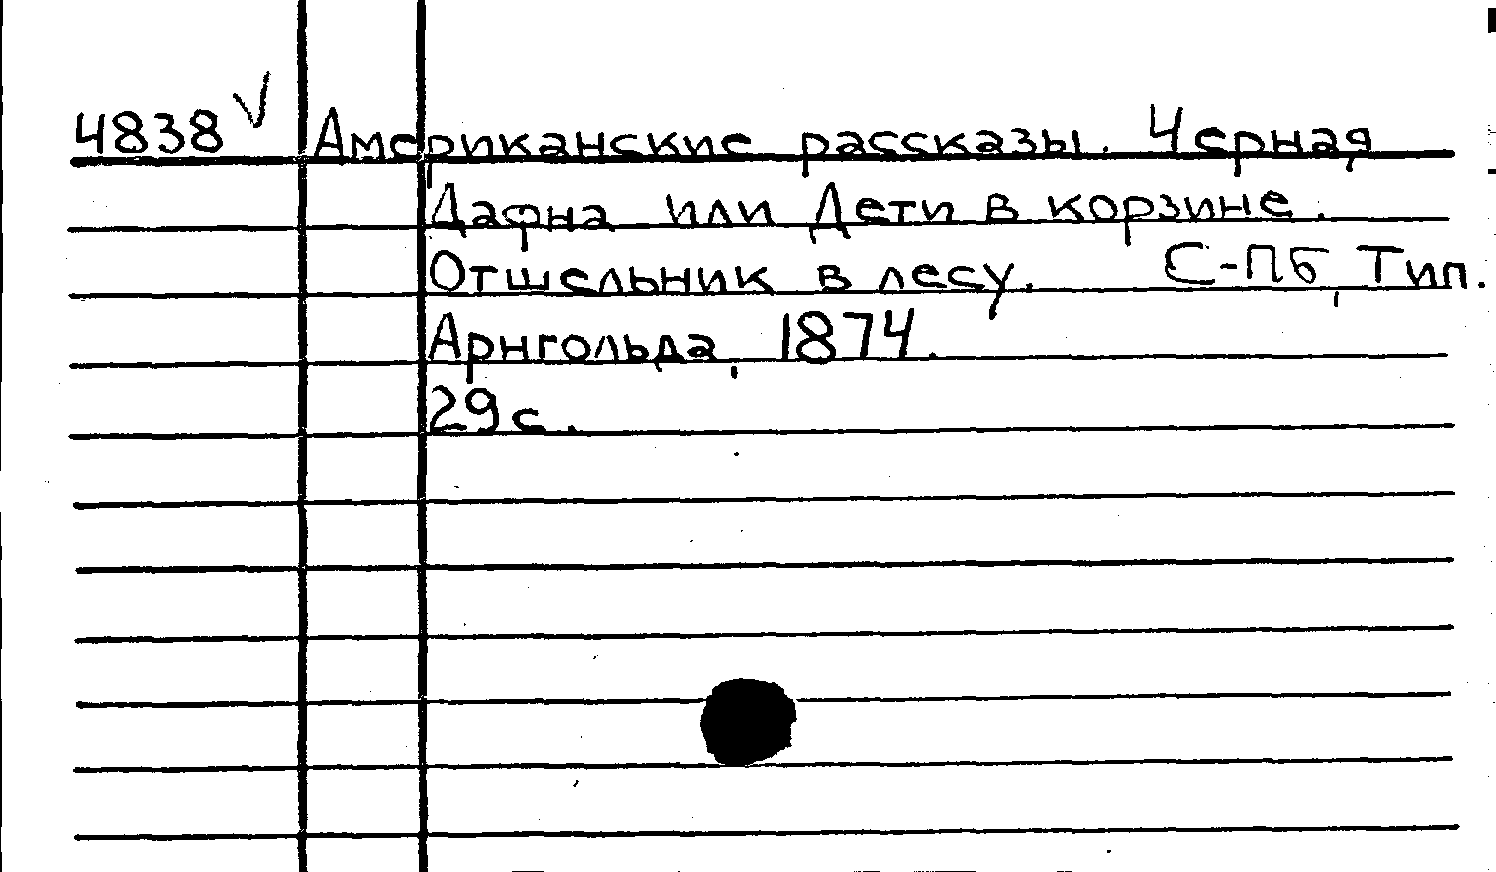 4838 √ Американские рассказы. Черная
Дафна или Дети в корзине.
Отшельник в лесу. С-ПБ, Тип.
Арнгольда, 1874.
29с.